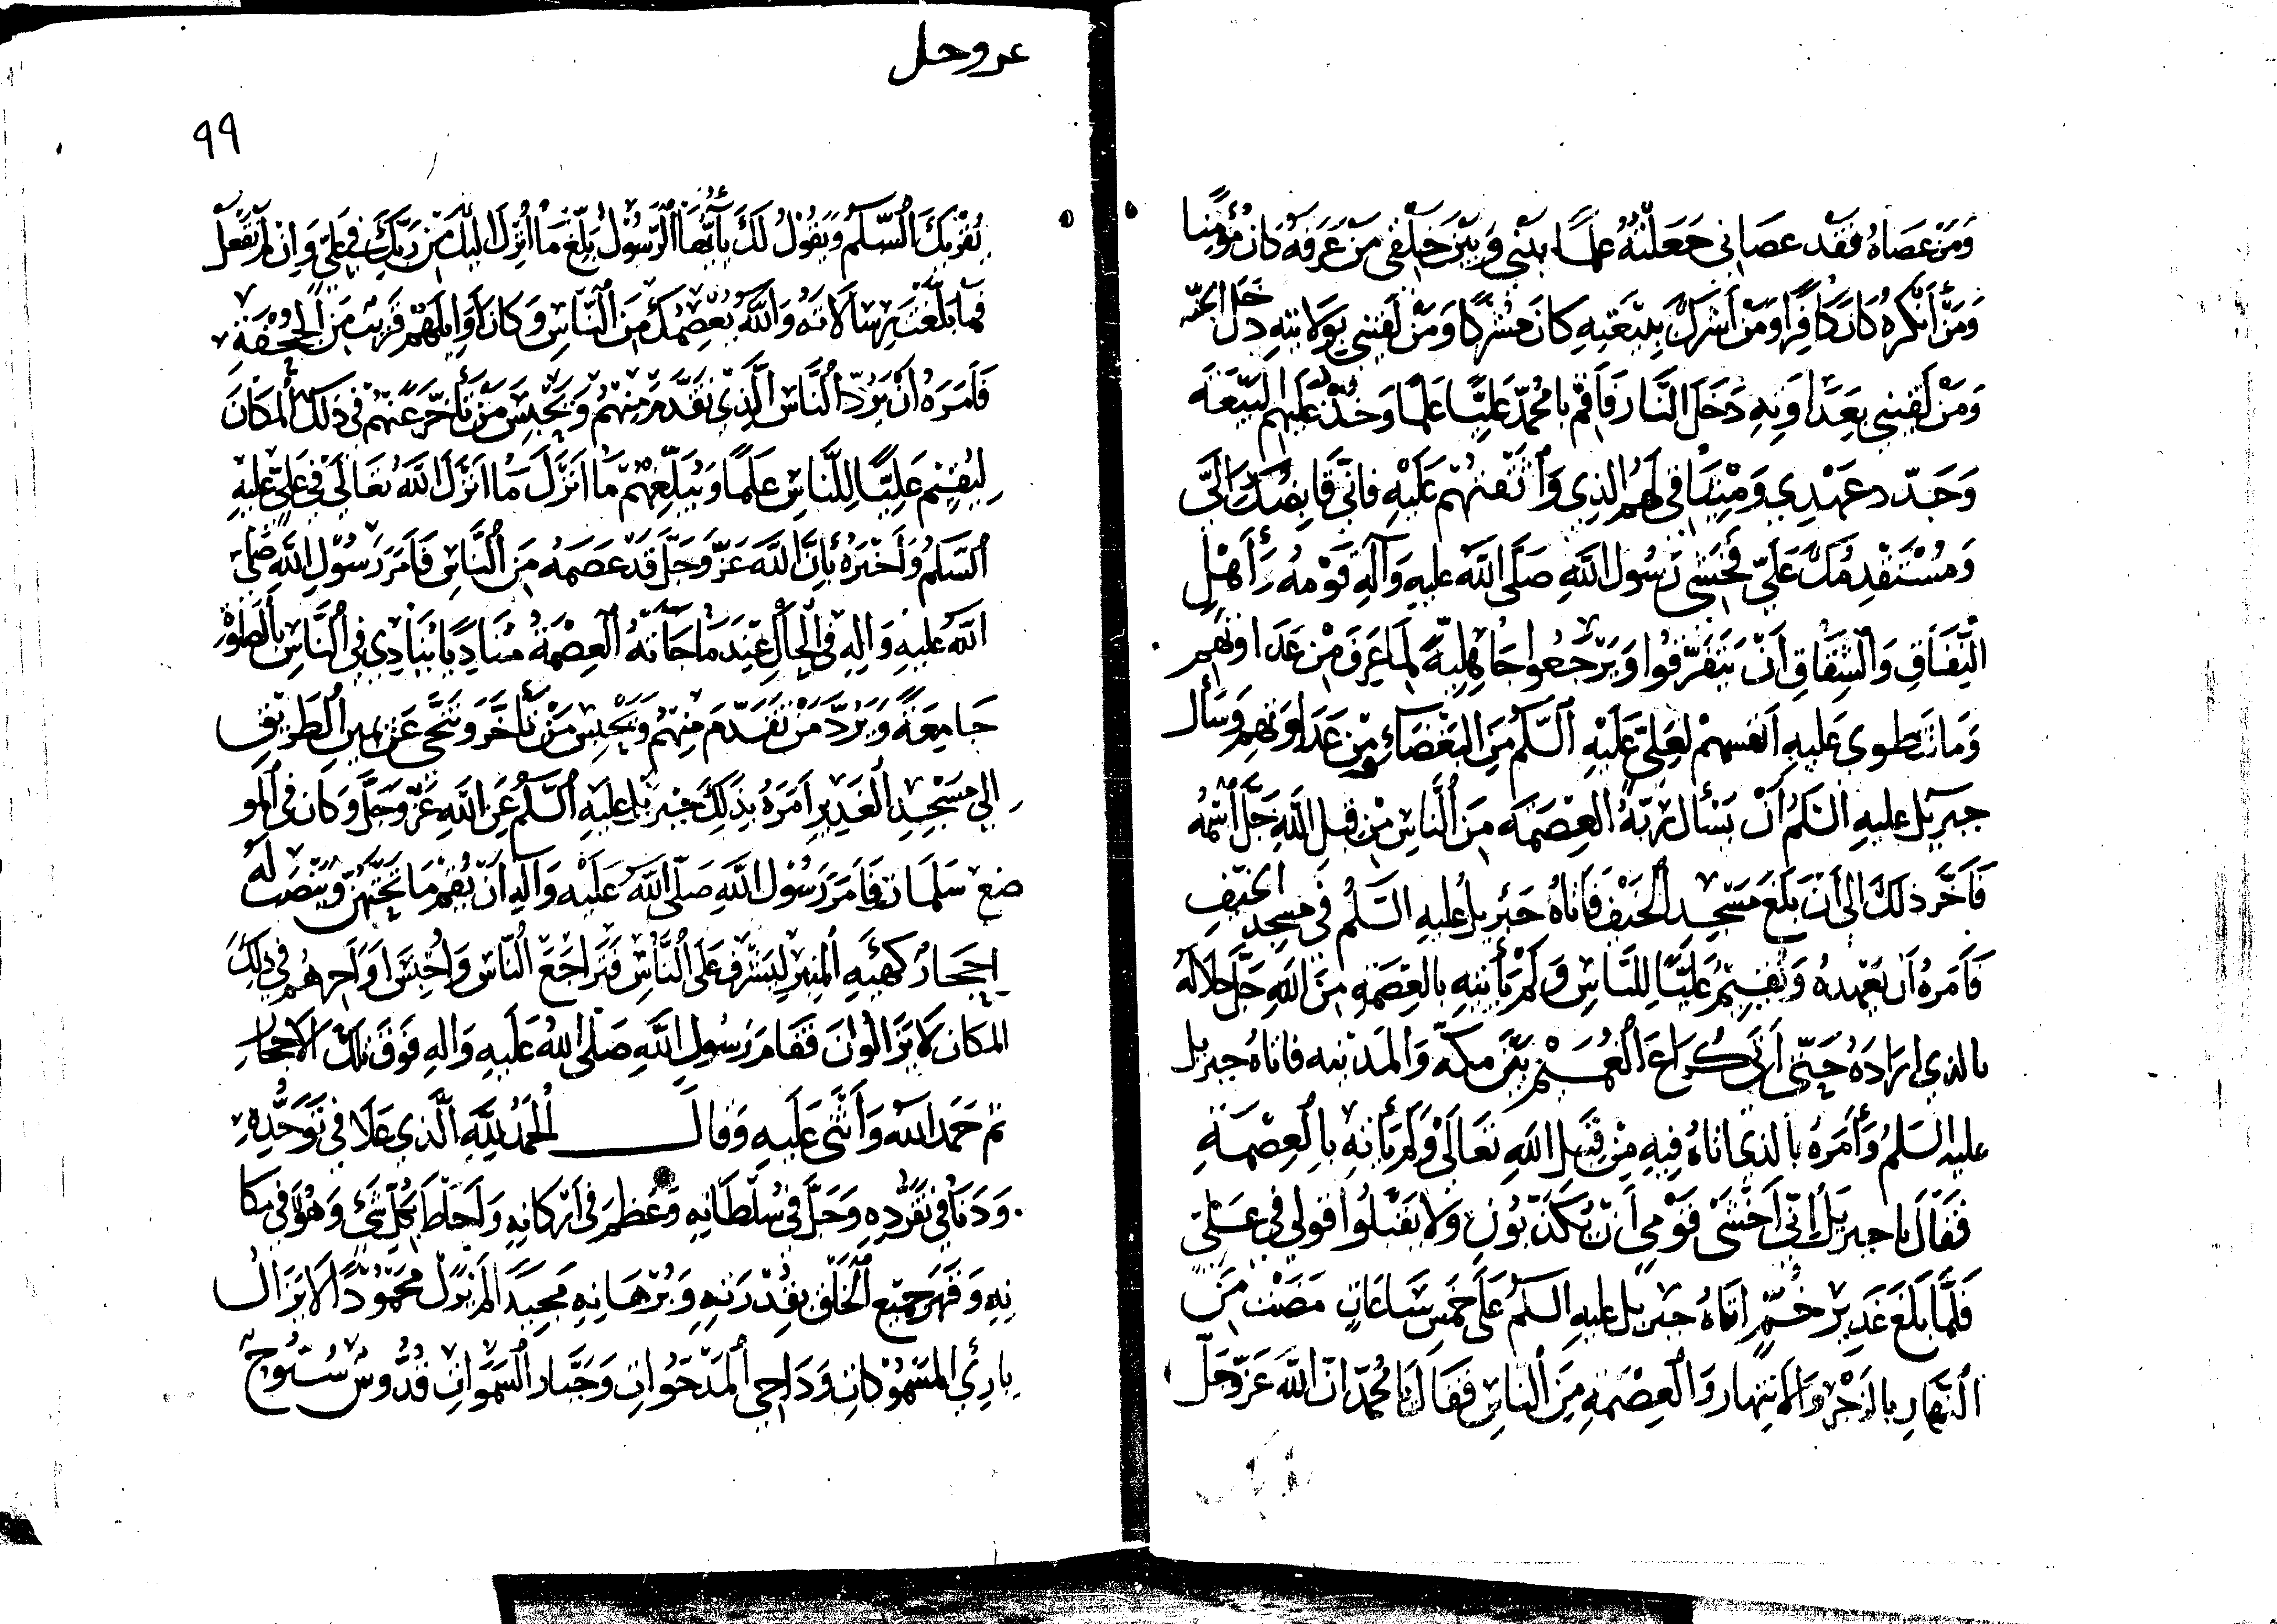 وَمَنْ عَصَاهُ فَقَد عصَانى جَعَلْتُهُ علمًا بينى وَبَيْنَ خَلْقى مَنْ عَرَفَهُ كَانَ مُؤمِنًا
وَمَنْ أَنْكَرهُ كَانَ كَافِرًا وَمَنْ أَشْرَكَ بِبَيْعَتِهِ كانَ مشْرِكًا وَمَنْ لَقيَنى بِوَلايَتِهِ دخل الجنّه
وَمَنْ لَقِيَنى بِعَدَاوَتِهِ دَخَلَ النَّار فَاَقِمْ يا مُحمّد عَليًّا عَلمًا وَخُذْ عَلَيهِم البَيْعَةَ
وَجَدّد عَهْدِي وَمِيْثَاقى لَهُم الذِي وَاثَقْتُهُم عَلَيْهِ فانّى قَابِضُكَ اِلَىَّ
وَمُسْتَقْدِمُكَ عَلَىّ فَخَشى رَسُول اللّهِ صَلَّى اللّه عليهِ وَآلِهِ قَوْمهُ وَأَهْل
النِّفَاقِ وَالشِّقَاقِ اَنْ يَتَفَرَّقُوا وَيَرْجَعُوا جَاهِليَّةً لِمَا عَرَفَ مِنْ عَدَاوتهم
وَمَا تَنطَوى عَليهِ اَنْفسهمْ لِعَلِىّ عَلَيْهِ السَّلَم مِنَ البَغْضَاءِ مِن عَدَاوَتهِم وَسَأل
جبريْل عليهِ السَّلَمُ اَنْ يَسْأل رَبّهُ العِصْمَه مِنَ النَّاسِ مِنْ قِبَلِ اللّهِ جَلَّ اسْمُهُ
فَاَخَّر ذَلكَ اِلى اَنْ بَلَغَ مَسْجِد الخَيْف فَاَتَاهُ جَبْريلُ عليهِ السَّلَمُ فى مَسجِدِ الخَيْفِ
فَاَمَرهُ اَنْ يَعْهدهُ وَيُقِيمَ عَلِيًّا لِلنَّاسِ وَلَمْ يَأْتِيهِ بالعِصْمَهِ مِنَ اللّهِ جَلّ جَلالُهُ
بالذي اَرَادَهُ حَتّى اَتَى كُرَاعَ الغُمَيْمِ بَيْن مكهَ وَالمدينه فاتَاهُ جبريل
عليه السَلمُ وَأَمَرَهُ بالذى اتاهُ فِيهِ مِنْ قِبَل اللّهِ تَعَالَى وَلَمْ يَأتِهِ بِالعِصْمَةِ
فَقَالَ يا جبريْل اِنّى اَخْشَى قَوْمِى اَنْ يُكَذّبُونِ وَلا يَقْبَلُوا قَولى فى عَلىّ
فَلَمَّا بَلَغَ غَدِيْرَ خُمّ اَتَاهُ جِبريل عليهِ السلَمُ عَلى خَمْسِ سَاعَاتٍ مَضَتْ مِنَ
النّهَارِ بالزَجْرِ وَالاِنتِهار وَالعِصْمَهِ مِنَ الناسِ فَقَالَ يَا مُحمّدُ انّ اللّهَ عَزَّ وَجَلَّ
عز وجل
٩٩
يُقْرِيكَ السَّلَمَ وَيَقُولُ لَكَ يَا أَيُّهَا الرَّسُوْل بَلِّغ مَا اُنْزِلَ اِلَيْكَ مِنْ رَبِّكَ فِى عَلِىٍّ وَاِنْ لَمْ تَفْعَلْ
فَمَا بَلَّغْتَ رِسَالاَتَهُ وَاللّهُ يَعْصِمُكَ مِنَ النَّاسِ وَكَانَ اَوَايلهمْ قَرِيب مِنَ الجُحْفَةِ
فَاَمَرَهُ اَنْ يَرُدّ النَّاس الَّذِى تَقَدَّمَ مِنْهُمْ وَيَحْبِسَ مَنْ تَأخّرَ عَنْهُم فى ذلك المكَانَ
لِيُقِيْم عَلِيًّا لِلنَّاسِ عَلَمًا وَيُبَلِّغهُمْ مَا اَنْزَلَ مَا اَنْزَلَ اللّهُ تعَالَى فِى عَلِىّ عَلِيهِ
السَّلَمُ وَاَخْبَرَهُ بِأَنَّ اللّهَ عَزَّ وَجَلَّ قَدْ عَصَمَهُ مِنَ النَّاسِ فَاَمَرَ رَسُوْل اللّهِ صَلّى
اللّهُ عَليهِ وَآلِهِ فى الحَالِ عِنْدَ مَا جَاتهُ العِصْمَهُ مُنَادِيًا يُنَادِى فِى النَّاسِ بالصَلوْة
جَامِعَةً وَيَردّ مَنْ تَقَدّمَ مِنْهُمْ وَيَحْبِس مَنْ تَأَخَّرَ وَتنحَّى عَنْ يمِينِ الطَّرِيْقِ
اِلى مَسْجِدِ الغَدِيْرِ اَمَرَهُ بِذَلِكَ جَبْريْل عليهِ السّلَمُ عَنِ اللّهِ عَزَّ وَجَلَّ وَكان فى المو
ضع سَلَمات فَاَمَرَ رَسُوْل اللّهِ صَلّى اللّهُ عَلَيْه وَآلِه اَنْ يُقمّ مَا تَحْتَهُنّ وَيُنْصَبَ لَهُ
اَحجَارٌ كهَيْئَهِ المنْبرِ لِيُشْرِفَ عَلَى النَّاسِ فَتَرَاجَعَ النّاسَ وَاحْتبسَ اَوَاخرهُم فى ذَلِكَ
المكَان لاَ يَزَالُوْنَ فَقَامَ رَسُوْل اللّهِ صَلَّى اللّهُ عَلَيهِ وَالهِ فَوْقَ تلكَ الاَحجَار
ثم حَمَد اللّه وَأَثْنَى عَلَيهِ وَقالَ اَلْحَمْدُ لِلّهِ الَّذِي عَلاَ فِى تَوَحّدِهِ
وَدَنَا فى تَفَرُّدِهِ وَجَلَّ فى سُلْطَانِهِ وَعَظمَ فى اَرْكَانِهِ وَاَحَاطَ بكُلِّ شَئٍ وَهُوَ فى مَكا
نِهِ وَقَهَرَ جَمِيْعَ الخَلْقِ بِقُدْرَتِهِ وَبُرْهَانِهِ مَجِيدًا لَمْ يَزَلْ محْمُودًا لاَ يَزَالُ
بارِئ المَسْمُوْكَاتِ وَدَاحِى المَدْحُوّاتِ وَجَبَّار السَّمَوَاتِ قُدُّوسٌ سُبُّوحٌ